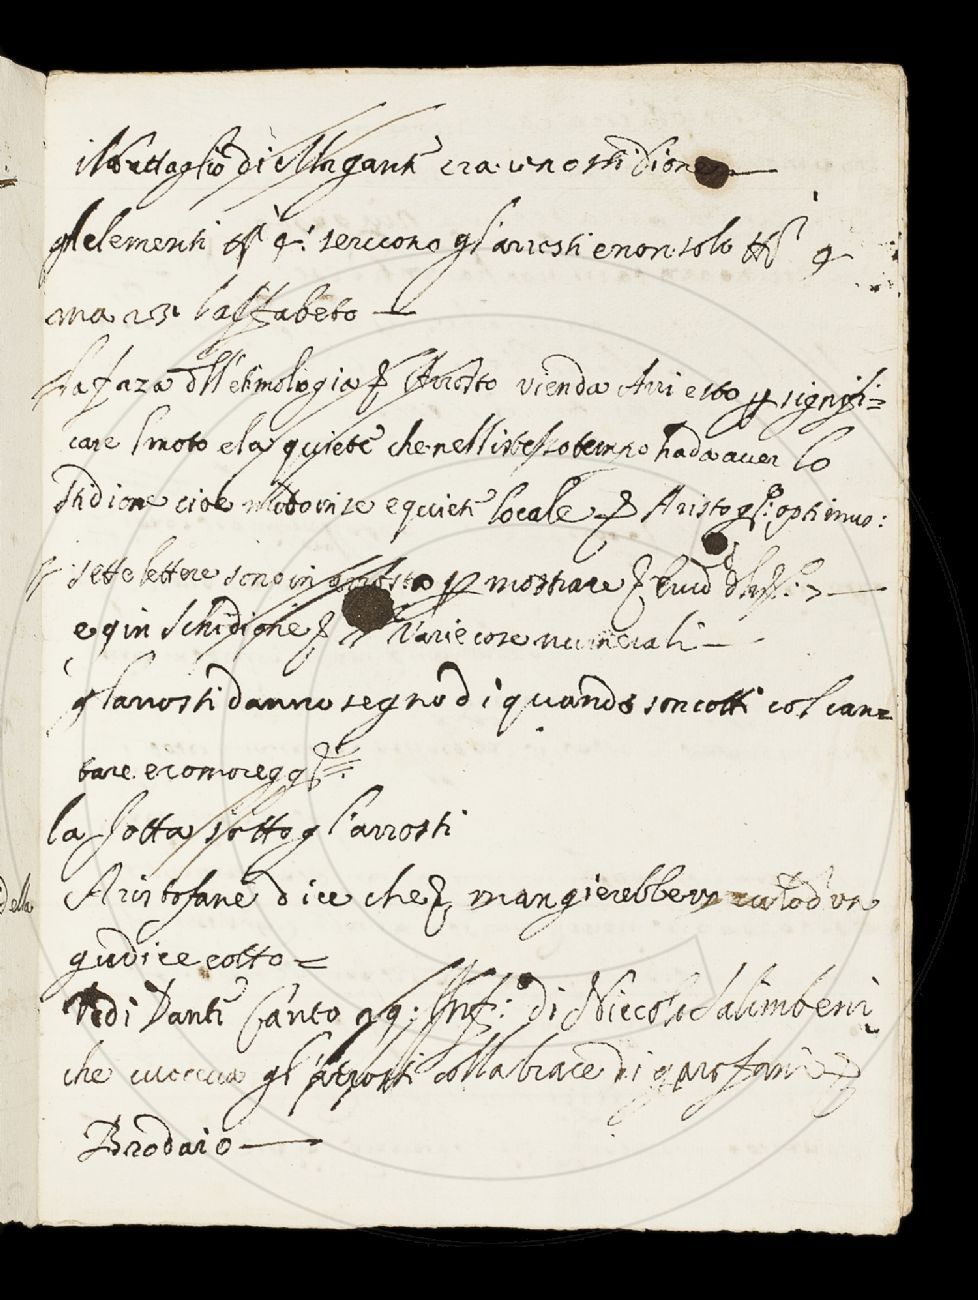 il battaglio di Margantt era uno stidione
gl elementi 4: seruono gl'arrosti e non solo
ma 23 l'alfabeto
La faza dll'etimologia Arrosto vienda Arri esto significi=
care l moto e la quiete che nell'istesso tempo hada auer lo
stidione cioe moto in se e quiete locale Aristo optimus:
sette lettere sono in arrosto mostrare
e 9 in Schidione Varie cose numerali
gl'arrosti danno segno di quando son cotti col can=
tare e romoregg
la Jotta sotto gl'arrosti
Aristofane dice che mangierebbe un culo d'un
gudice cotto =
Vedi Dante Canto 29: Inf: di Niccolo Salimbeni
che cuoceua gl'arrosti colla brace di garofani
Brodaio
della